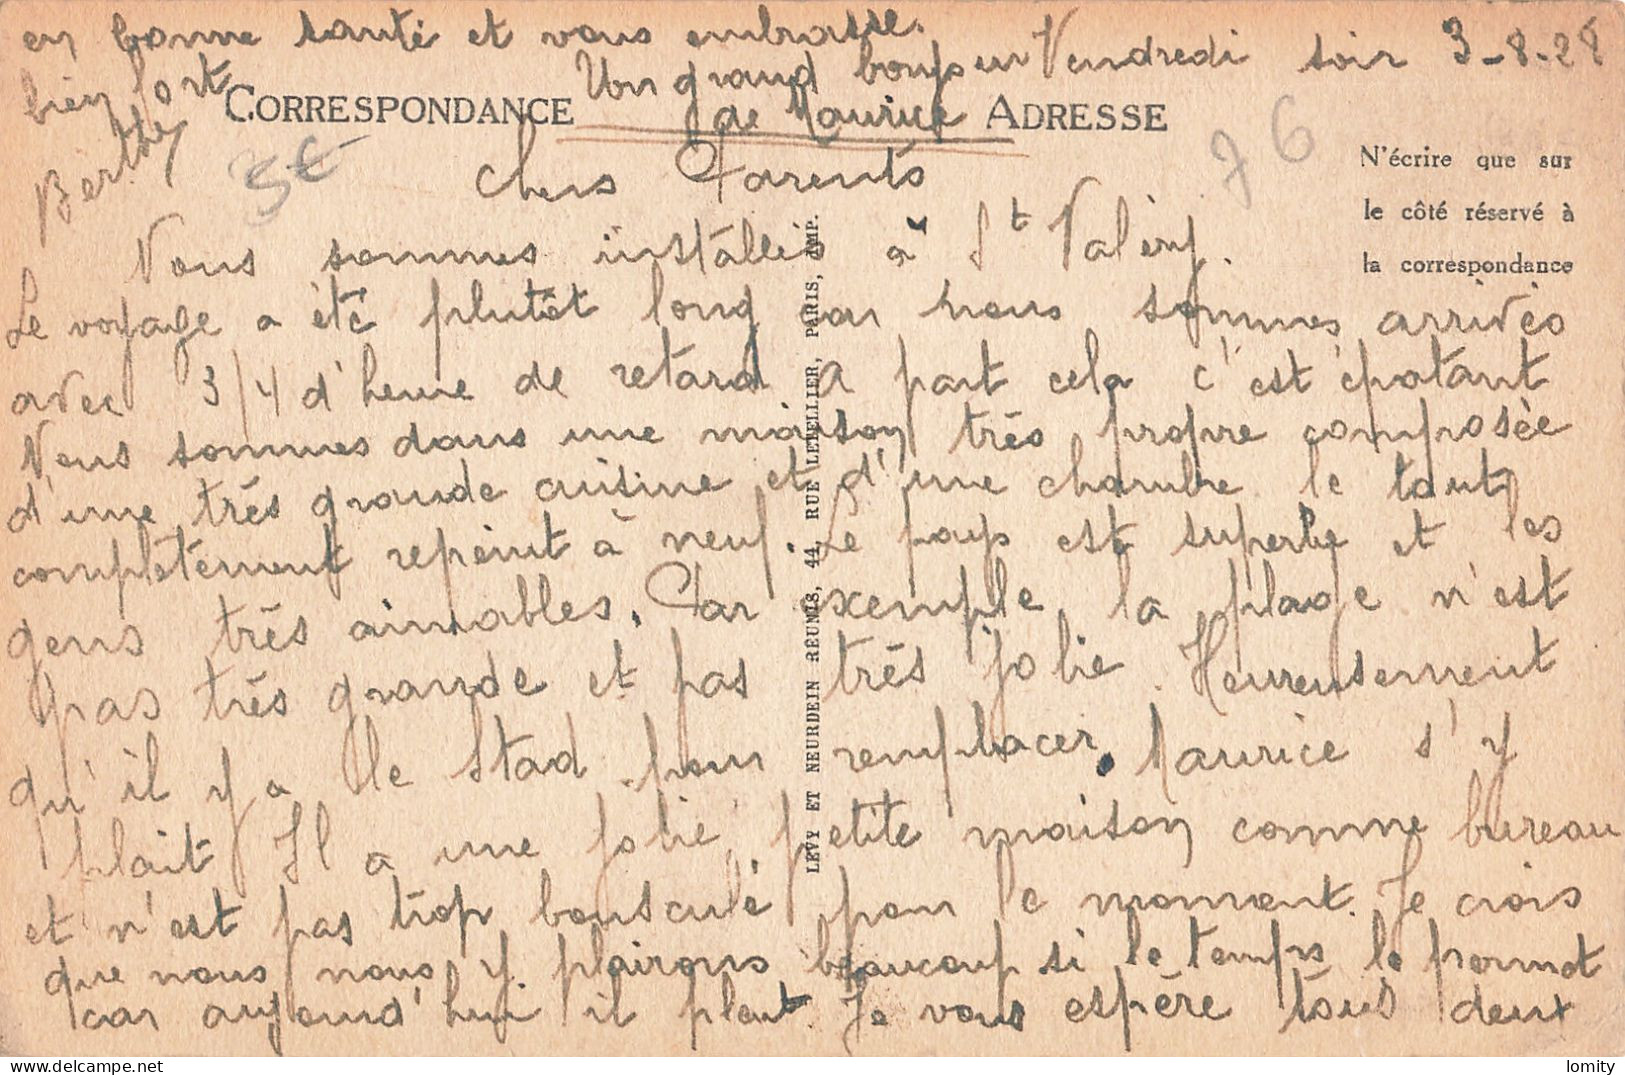 en bonne santé et vous embrasse.
bien fort
Berthe
Un grand bonjour
de Maurice
Vendredi soir 3-8-28
CORRESPONDANCE
ADRESSE
3€
76
N'écrire que sur
le côté réservé à
la correspondance
Chers Parents
Nous sommes installés à St Valéry.
Le voyage a été plutôt long car nous sommes arrivés
avec 3/4 d'heure de retard A part cela c'est épatant
Nous sommes dans une maison très propre composée
d'une très grande cuisine et d'une chambre le tout
complètement repeint à neuf. Le pays est superbe et les
gens très aimables. Par exemple la plage n'est
pas très grande et pas très jolie. Heureusement
qu'il y a le Stad pour remplacer. Maurice s'y
plait Il a une jolie petite maison comme bureau
et n'est pas trop bousculé pour le moment. Je crois
que nous nous y plairons beaucoup si le temps le permet
car aujourd'hui il pleut Je vous espère tous deux
LEVY ET NEURDEIN RÉUNIS, 44, RUE LETELLIER, PARIS, IMP.
lomity